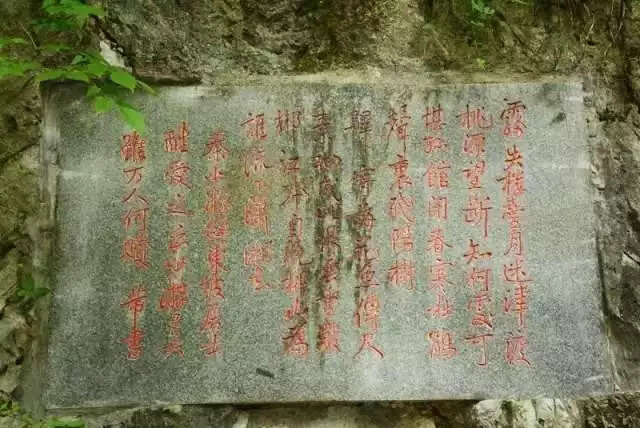 霧失樓臺月迷津渡
桃源望斷知何處可
堪孤館閉春寒杜鵑
聲裏殘陽樹
驛寄梅花魚傳尺
素砌成此恨無重數
郴江幸自繞郴山為
誰流下瀟湘去
秦少游辭東坡居士
酷愛之云少游已矣
雖万人何贖 芾書